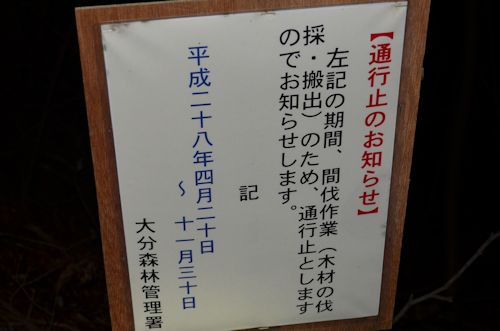 【通行止のお知らせ】
左記の期間、間伐作業（木材の伐
採・搬出）のため、通行止とします
のでお知らせします。
記
平成二十八年四月二十日
～ 十一月三十日
大分森林管理署